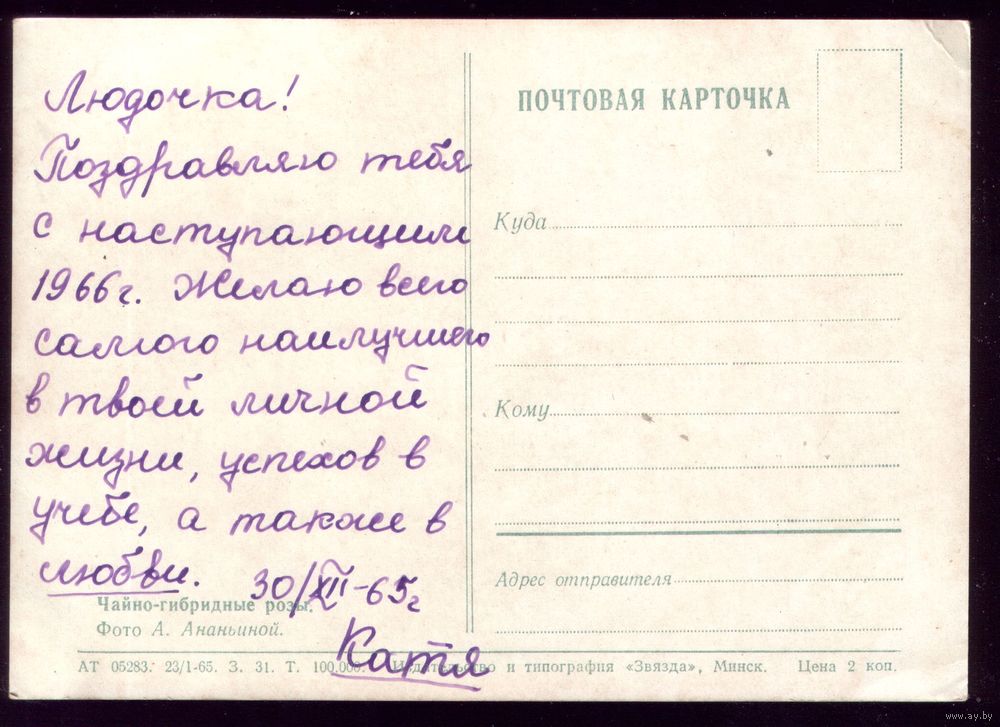 Людочка!
Поздравляю тебя
с наступающим
1966г. Желаю всего
самого наилучшего
в твоей личной
жизни, успехов в
учебе, а также в
любви.
30/XII-65г
Катя
Чайно-гибридные розы.
Фото А. Ананьиной.
ПОЧТОВАЯ КАРТОЧКА
Куда
Кому
Адрес отправителя
АТ 05283. 23/1-65. З. 31. Т. 100.000. Издательство и типография «Звязда», Минск. Цена 2 коп.
www.ay.by